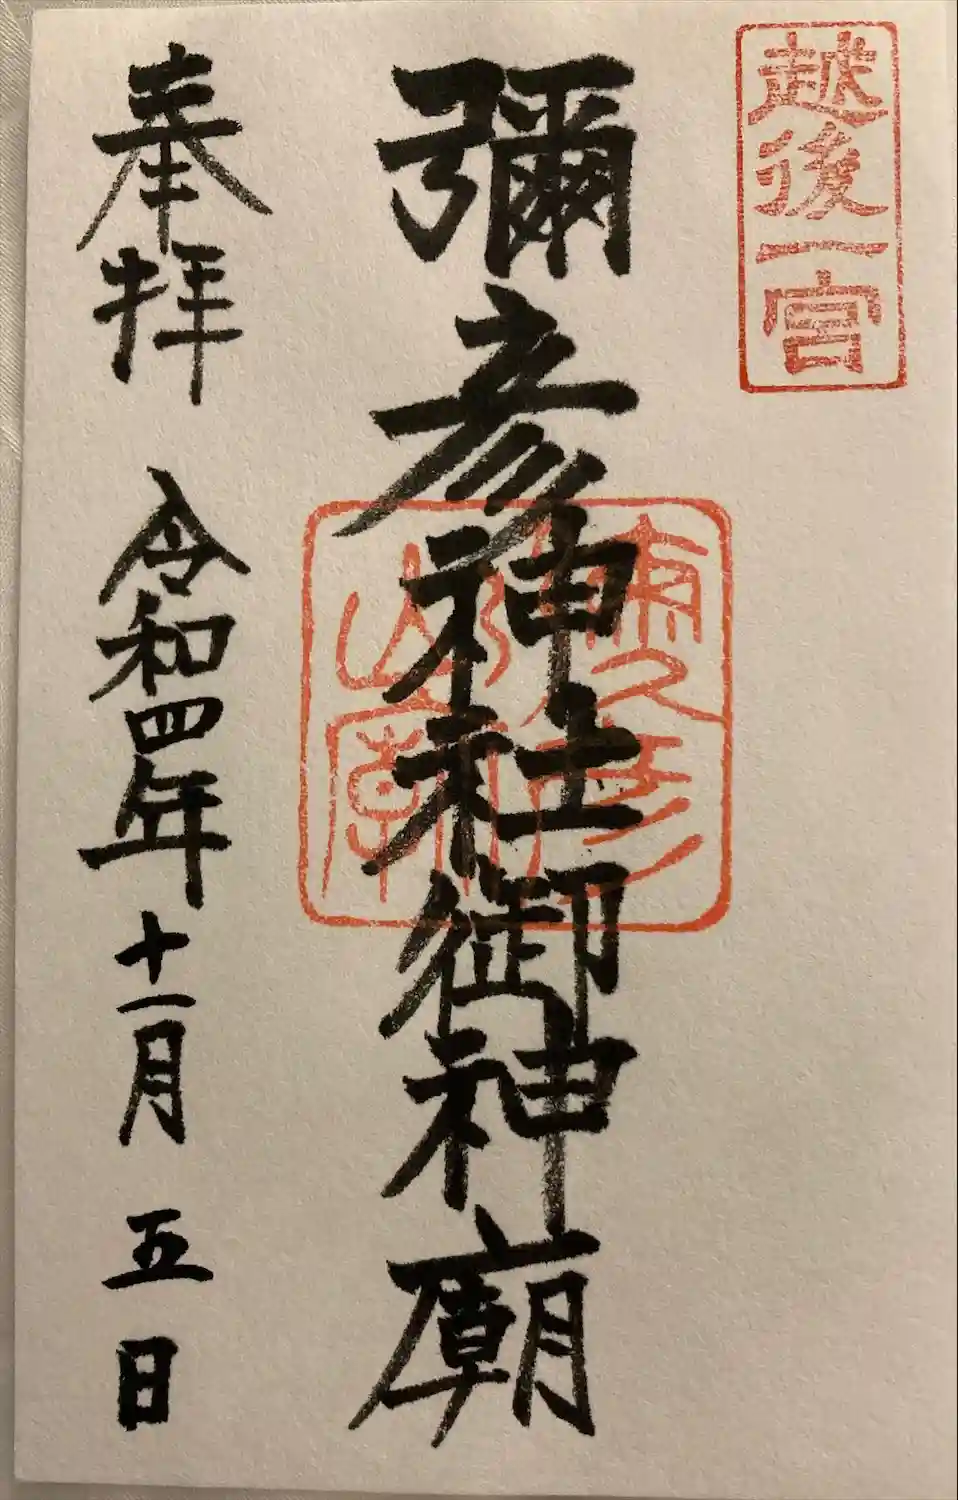 越後一宮
彌彦神社御神廟
奉拝 令和四年十一月 五日